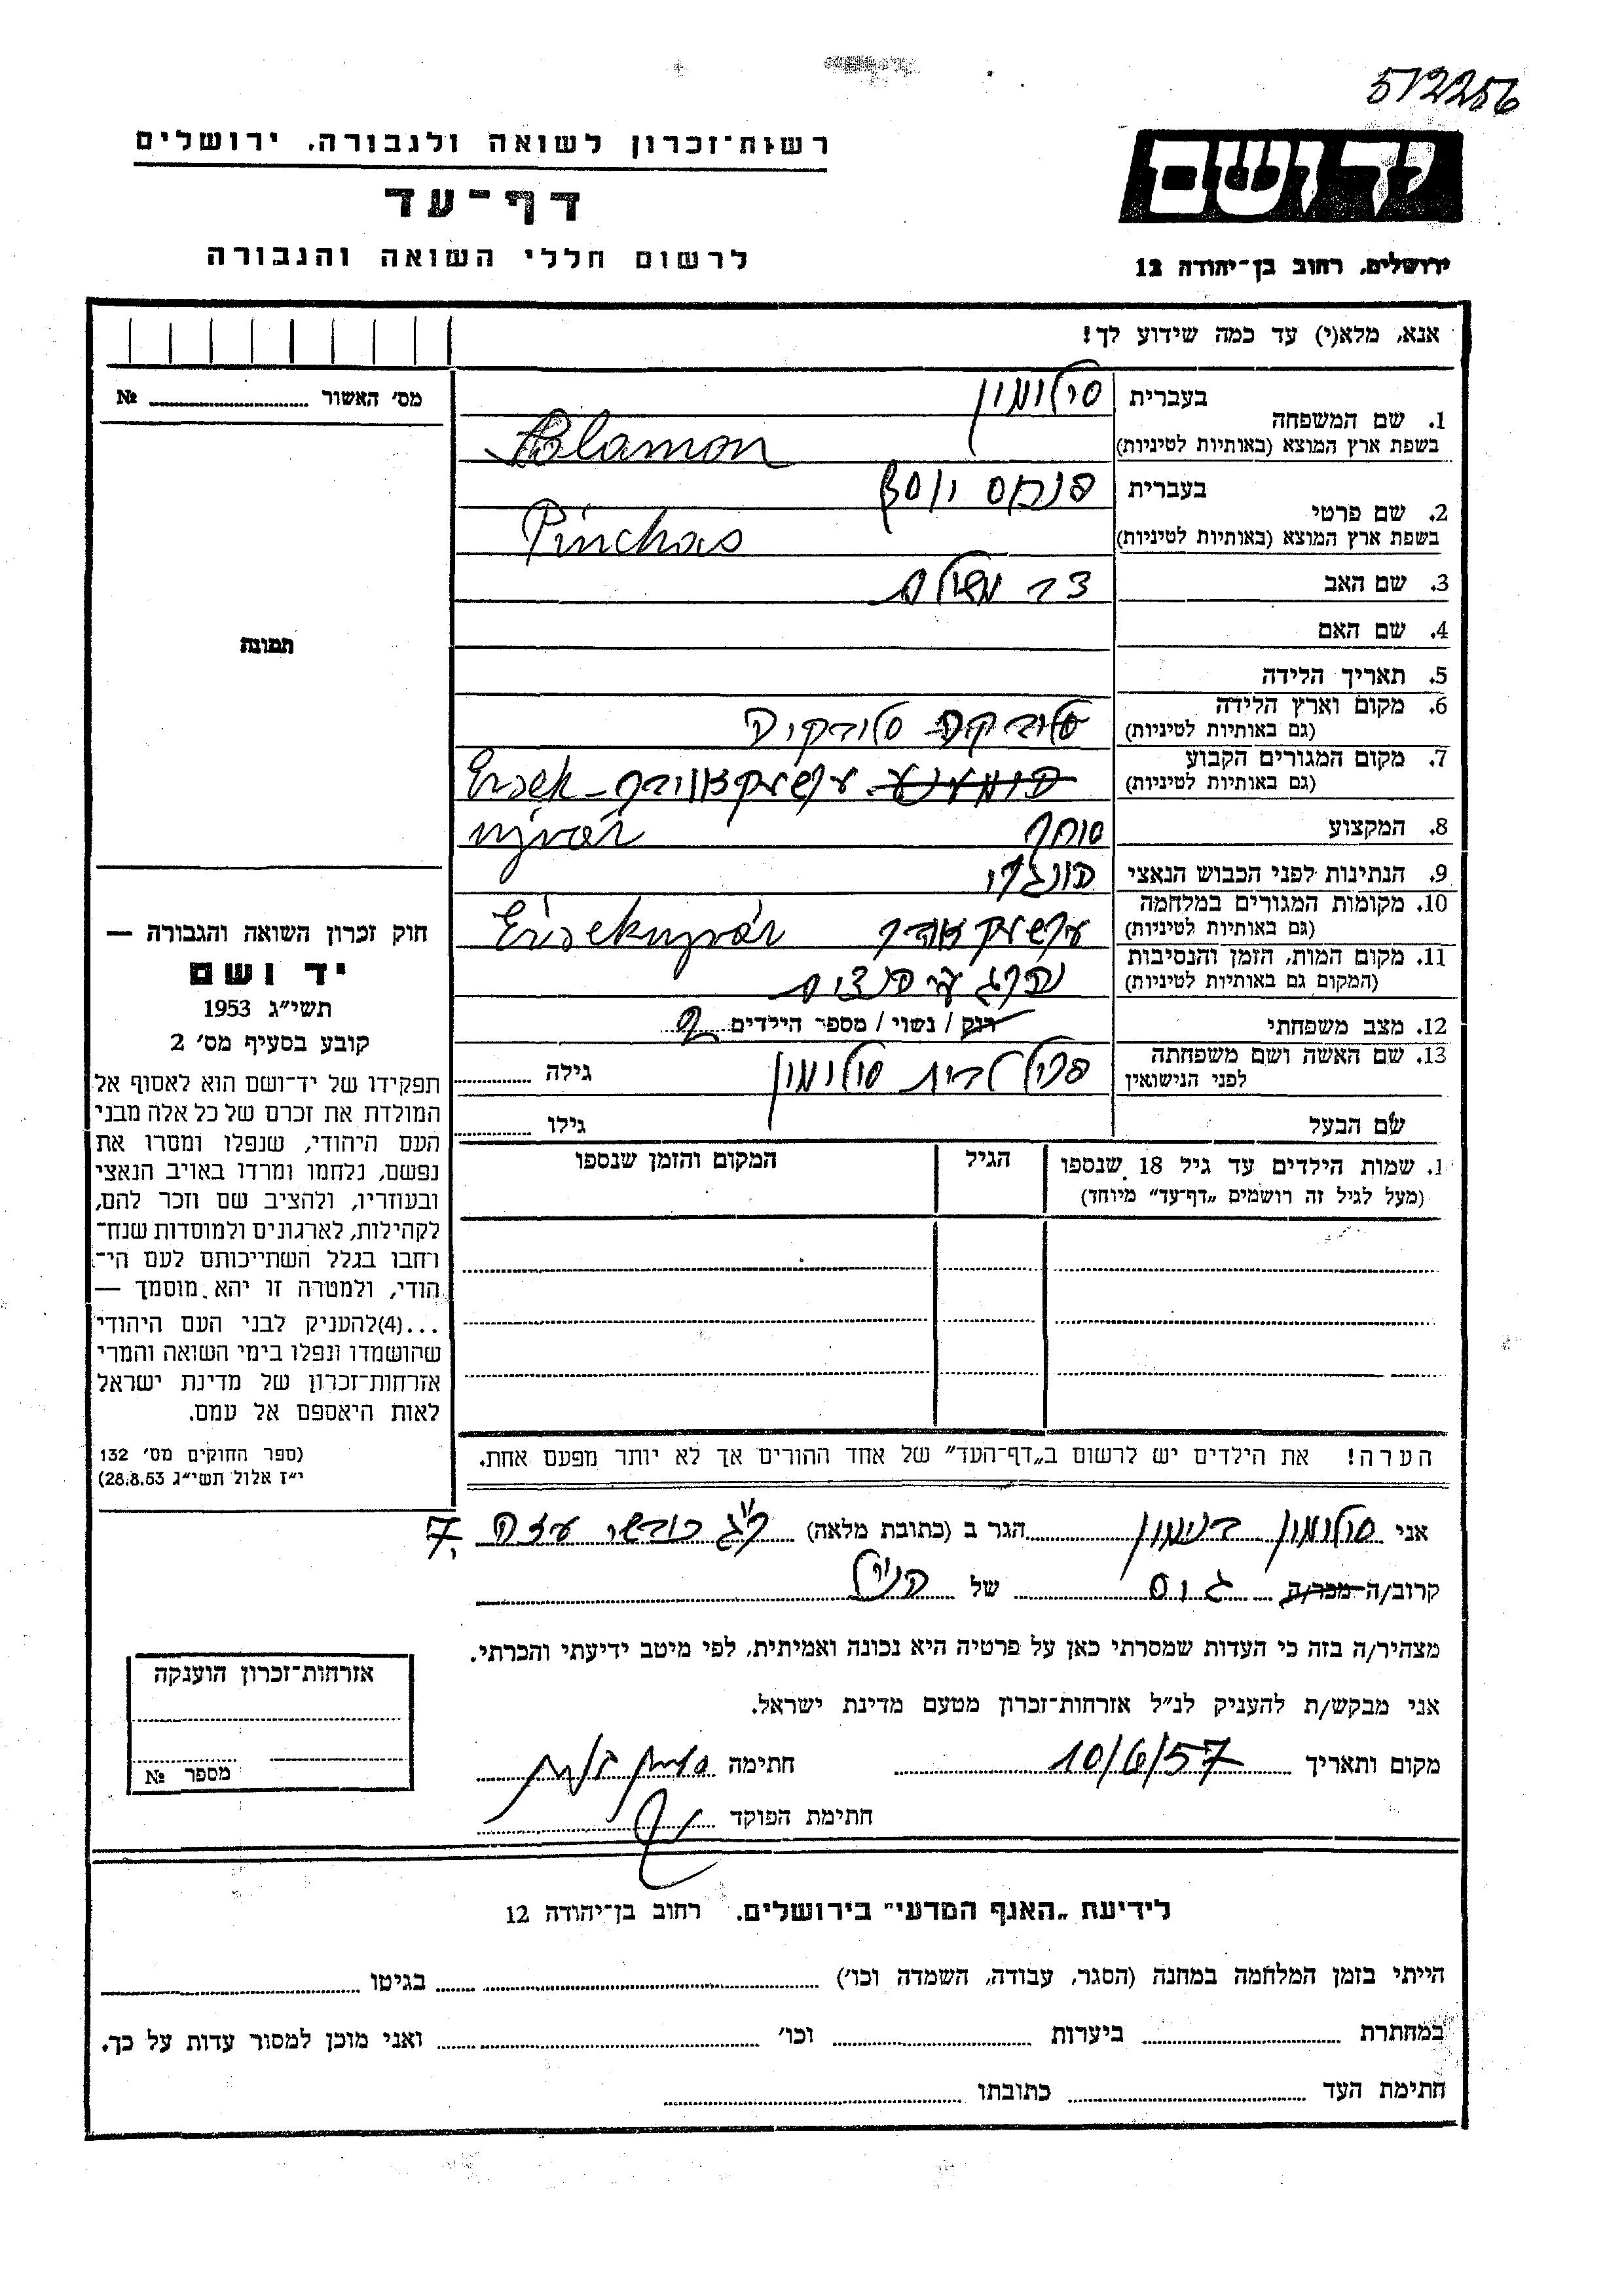 512256
יד ושם
רשות־זכרון לשואה ולגבורה, ירושלים
דף־עד
לרשום חללי השואה והגבורה
ירושלים, רחוב בן־יהודה 12
אנא, מלא(י) עד כמה שידוע לך!
מס' האשור № 
תמונה
1. שם המשפחה
בעברית סולומון
בשפת ארץ המוצא (באותיות לטיניות) Solamon
2. שם פרטי
בעברית פנחס יוסף
בשפת ארץ המוצא (באותיות לטיניות) Pinchas
3. שם האב
4. שם האם
5. תאריך הלידה
6. מקום וארץ הלידה
(גם באותיות לטיניות) סלובקיה
7. מקום המגורים הקבוע
(גם באותיות לטיניות) Ersek-
8. המקצוע סוחר ujvár
9. הנתינות לפני הכבוש הנאצי הונגרי
10. מקומות המגורים במלחמה
(גם באותיות לטיניות) Ersekujvár
11. מקום המות, הזמן והנסיבות
(המקום גם באותיות לטיניות)
12. מצב משפחתי רוק / נשוי / מספר הילדים
13. שם האשה ושם משפחתה
לפני הנישואין לבית סולומון גילה
שם הבעל גילו
1. שמות הילדים עד גיל 18 שנספו הגיל המקום והזמן שנספו
(מעל לגיל זה רושמים „דף־עד” מיוחד)
הערה! את הילדים יש לרשום ב„דף־העד” של אחד ההורים אך לא יותר מפעם אחת.
חוק זכרון השואה והגבורה —
יד ושם
תשי״ג 1953
קובע בסעיף מס' 2
תפקידו של יד־ושם הוא לאסוף אל
המולדת את זכרם של כל אלה מבני
העם היהודי, שנפלו ומסרו את
נפשם, נלחמו ומרדו באויב הנאצי
ובעוזריו, ולהציב שם וזכר להם,
לקהילות, לארגונים ולמוסדות שנח־
רחבו בגלל השתייכותם לעם הי־
הודי, ולמטרה זו יהא מוסמך —
...(4)להעניק לבני העם היהודי
שהושמדו ונפלו בימי השואה והמרי
אזרחות־זכרון של מדינת ישראל
לאות היאספם אל עמם.
(ספר החוקים מס' 132
י״ז אלול תשי״ג 28.8.53)
אני סולומון בנימין הגר ב (כתובת מלאה) 7.
קרוב/ה מכר/ה גיס של הנ״ל
מצהיר/ה בזה כי העדות שמסרתי כאן על פרטיה היא נכונה ואמיתית, לפי מיטב ידיעתי והכרתי.
אני מבקש/ת להעניק לנ״ל אזרחות־זכרון מטעם מדינת ישראל.
מקום ותאריך 10/6/57 חתימה
חתימת הפוקד
אזרחות־זכרון הוענקה
מספר №
לידיעת „האגף המדעי” בירושלים, רחוב בן־יהודה 12
הייתי בזמן המלחמה במחנה (הסגר, עבודה, השמדה וכו') בגיטו
במחתרת ביערות וכו' ואני מוכן למסור עדות על כך.
חתימת העד כתובתו